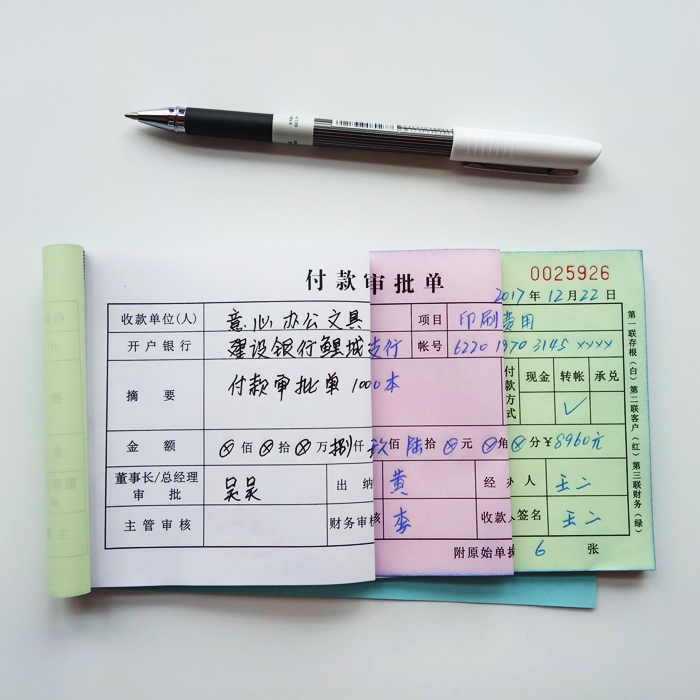 付款审批单
0025926
2017年12月22日
收款单位(人) 意心办公文具 项目 印刷费用
开户银行 建设银行鲤城支行 帐号 6220 1970 3145 xxxx
摘要 付款审批单1000本 付款方式 现金 转帐 承兑
✓
金额 ⊗佰⊗拾⊗万捌仟玖佰陆拾⊗元⊗角⊗分¥8960元
董事长/总经理 审批 吴吴 出纳 黄 经办人 王二
主管审核 财务审核 李 收款人签名 王二
附原始单据 6 张
第一联存根(白) 第二联客户(红) 第三联财务(绿)